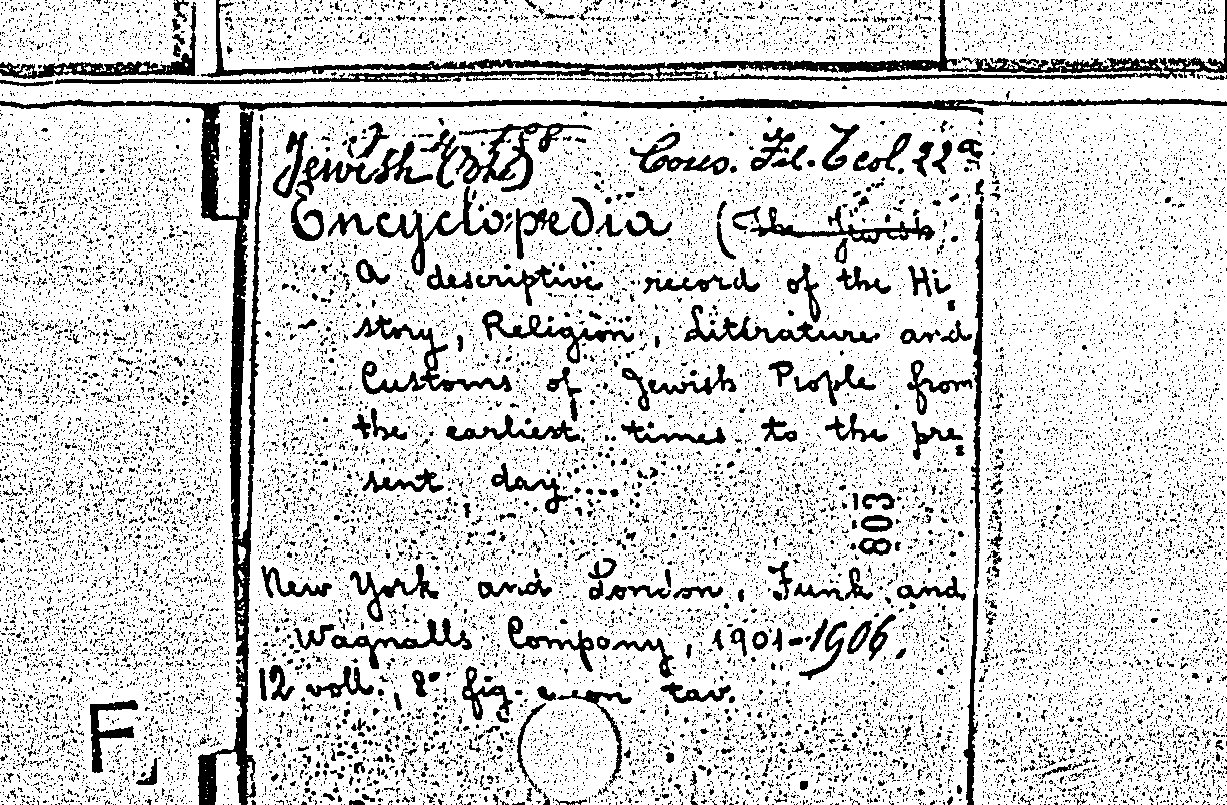 Jewish (The)
Cons. Fil. Teol. 22a
Encyclopedia (The Jewish
a descriptive record of the Hi
story, Religion, Litterature and
Customs of Jewish People from
the earliest times to the pre
sent day....
803
New York and London, Funk and
Wagnalls Company, 1901-1906.
12 voll., 8° fig. e con tav.
F